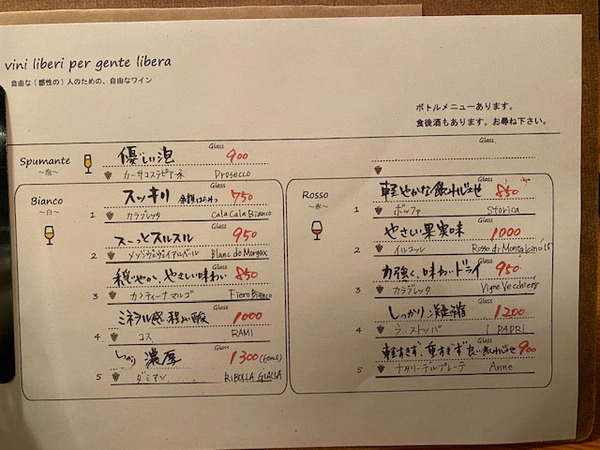 vini liberi per gente libera
自由な(感性の)人のための、自由なワイン
ボトルメニューあります。
食後酒もあります。お尋ね下さい。
Spumante
~泡~
優しい泡 Glass 900
カーサコステピアーネ Prosecco
Glass
Bianco
~白~
1 スッキリ Glass 750
カラブレッタ Cala Cala Bianco
2 スーっとスルスル Glass 950
Blanc de Morgex
3 穏やか、やさしい味わい Glass 850
カンティーナ マルゴ Fiero Bianco
4 ミネラル感、程よい酸 Glass 1000
コス RAMI
5 濃厚 Glass 1300 (60ml)
ダミアン RIBOLLA GIALLA
Rosso
~赤~
1 軽やかな飲みごたえ Glass 850
ボッファ Storica
2 やさしい果実味 Glass 1000
イルコッレ Rosso di Montalcino'15
3 力強く、味わいドライ Glass 950
カラブレッタ Vigne Vecchie
4 しっかり、凝縮 Glass 1200
ラ・ストッパ I PADRI
5 軽すぎず、重すぎず 良い飲みごたえ Glass 900
ナタリーノ デルプレーテ Anne